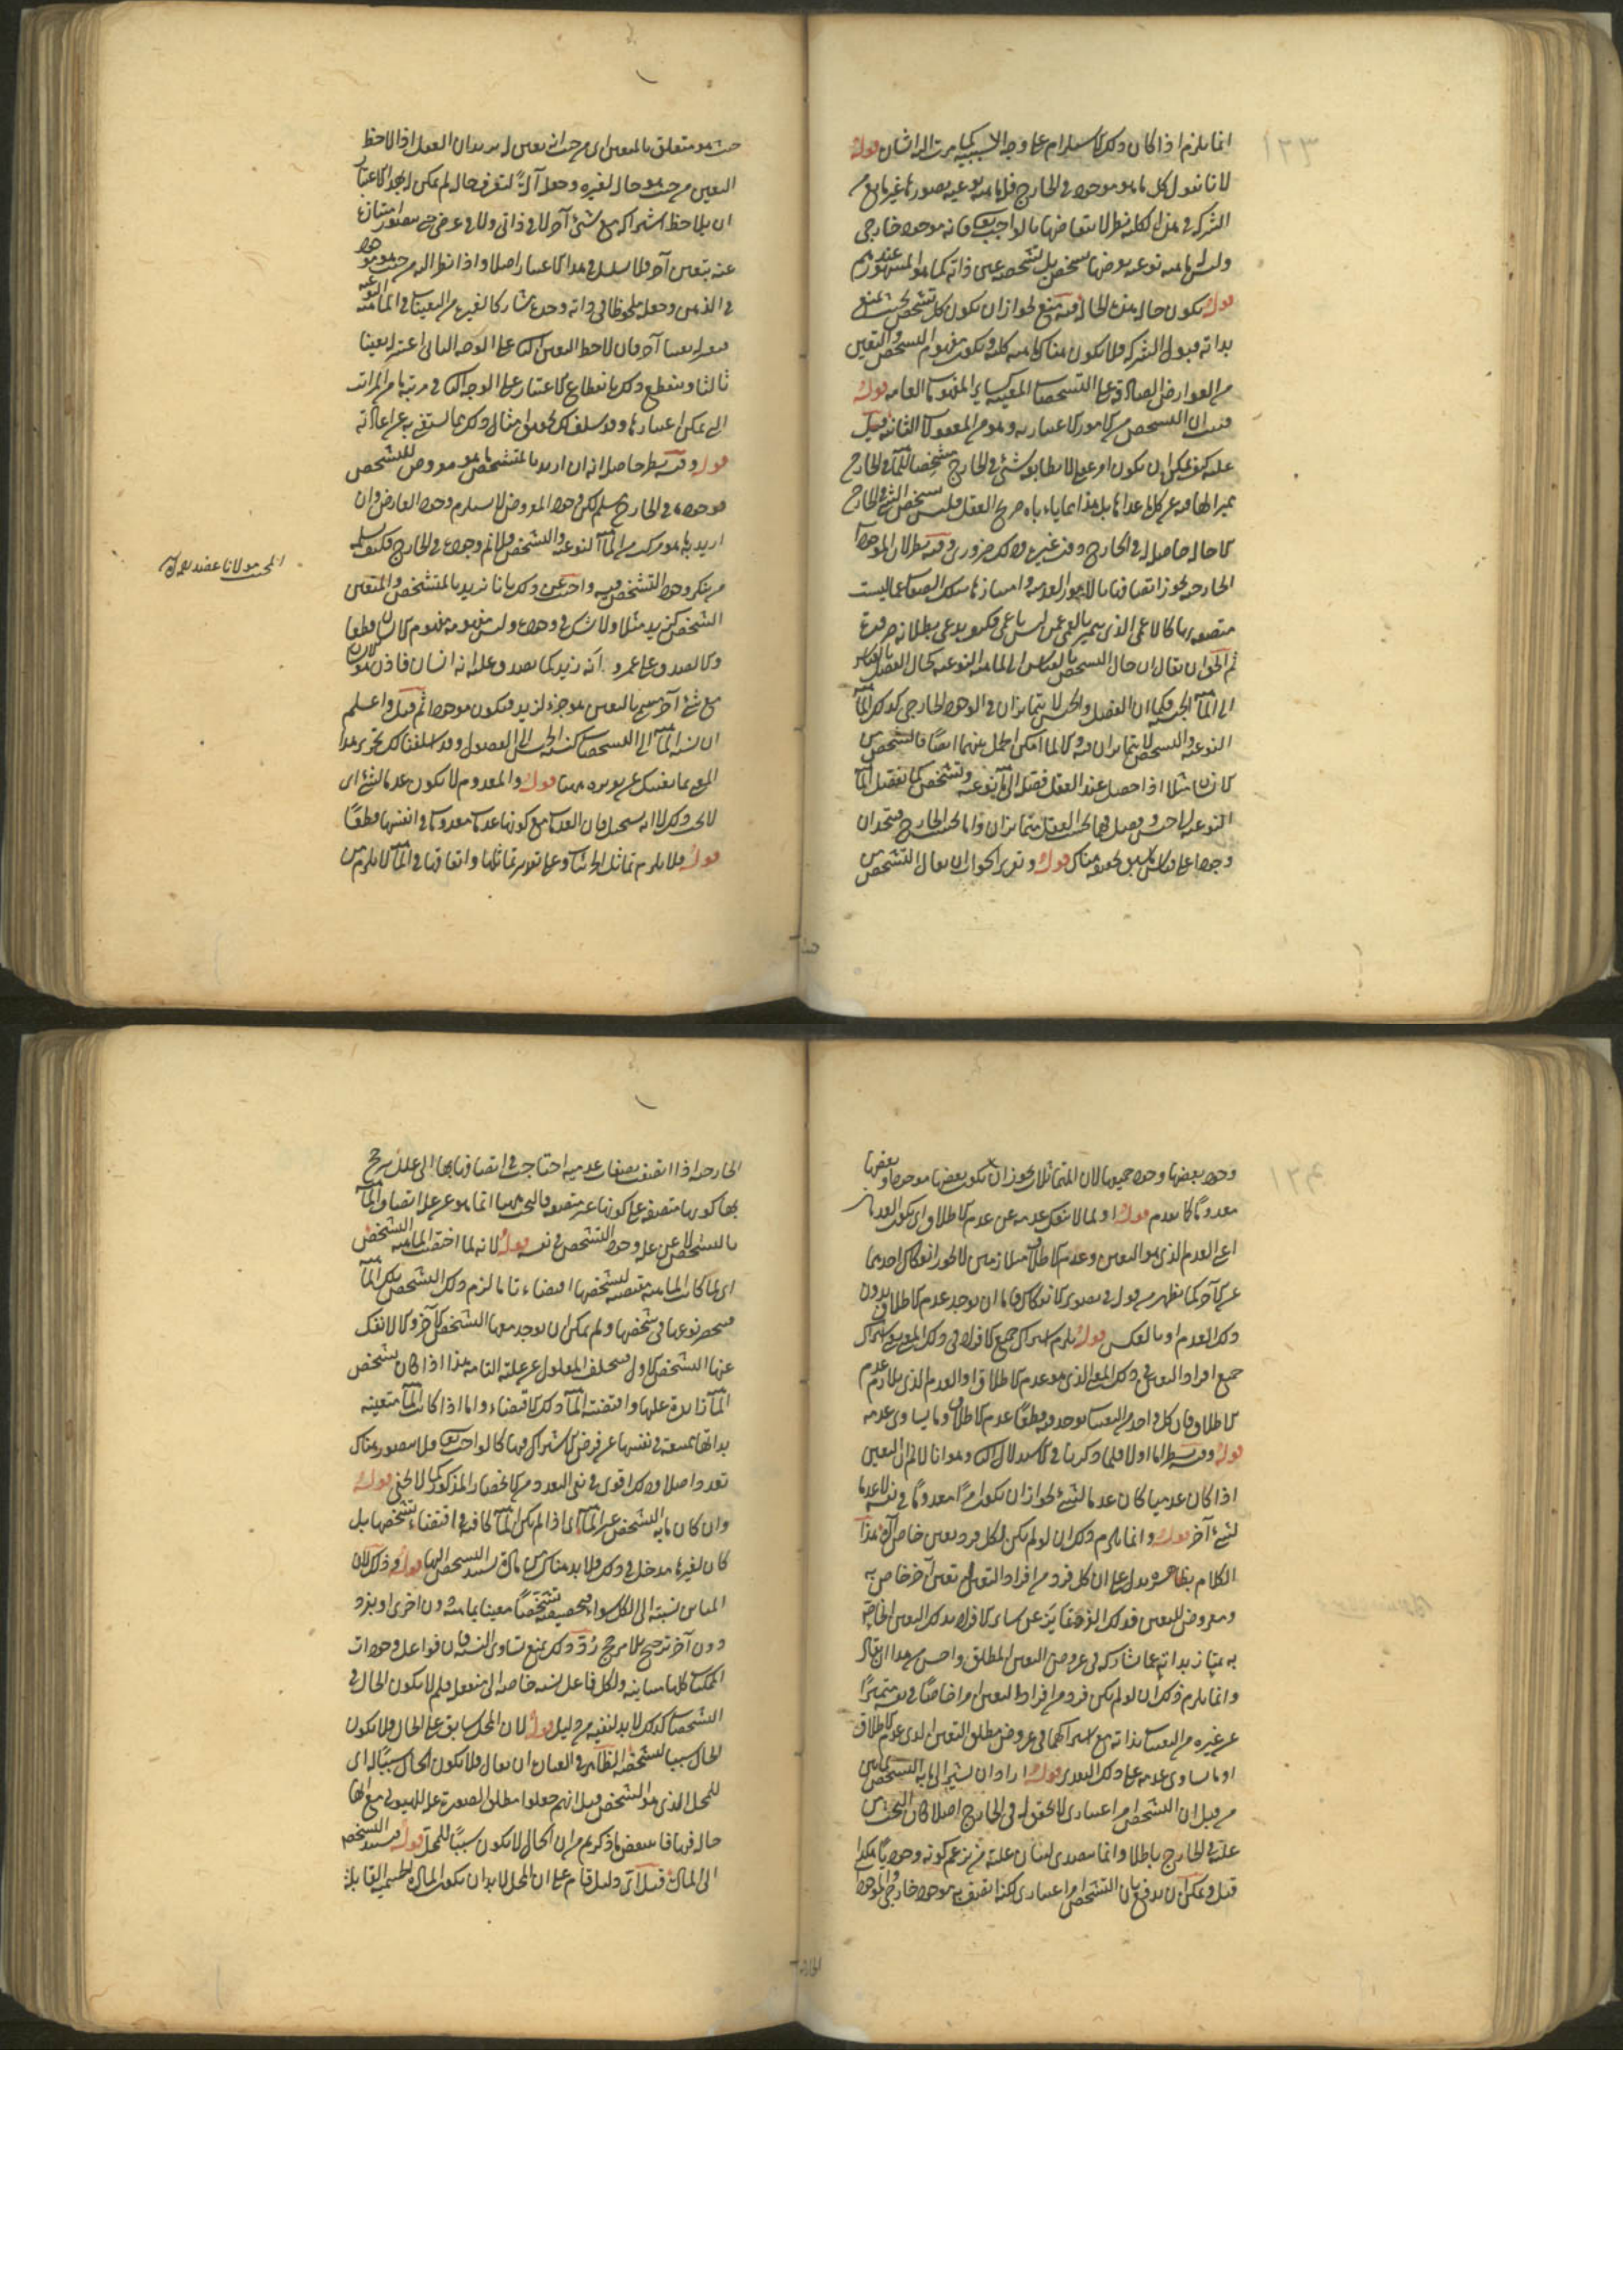 ١٢٣
انما يلزم اذا كان ذلك الاستلزام على وجه السببية كما مرت اليه اشارة قوله
لانا نقول كل ما هو موجود في الخارج فله ماهية نوعية تصورها غير مانع من
الشركة في هذه الكلية نظر لانتقاضها بالواجب تعالى فانه موجود خارجي
وليس له ماهية نوعية يعرضها تشخص بل تشخصه عين ذاته كما هو المشهور عندهم
قوله يكون حاله هذه الحال فيه منع لجواز ان يكون كل تشخص بحيث يمنع
بذاته قبول الشركة فلا يكون هناك ماهية كلية ويكون مفهوم التشخص والتعين
من العوارض الصادقة على التشخصات المعينة كسائر المفهومات العامة قوله
فثبت ان التشخص من الامور الاعتبارية وهو من المعقولات الثانية قيل
عليه كيف يمكن ان يكون امر عقلي لا يطابقه شئ في الخارج مشخصا للماهية في الخارج
مميزا لها فيه عن كل ما عداها بل هذا مما ياباه صريح العقل فليس تشخص الشئ في الخارج
الا حاله حاصلة له في الخارج دون غيره وذلك ضروري وفيه نظر لان الموجودات
الخارجية يجوز اتصافها بالامور العدمية وامتيازها بتلك الصفات عما ليست
متصفة بها كالاعمى الذي يتميز بالعمى عمن ليس باعمى فكيف يدعى بطلانه ضرورة
ثم الجواب ان يقال ان حال التشخص بالقياس الى الماهية النوعية كحال الفصل بالقياس
الى الماهية الجنسية فكما ان الفصل والجنس لا يتمايزان في الوجود الخارجي كذلك الماهية
النوعية والتشخص لا يتمايزان فيه والا لما امكن الحمل بينهما ايضا فالشخص
كزيد مثلا اذا حصل عند العقل فصله الى ماهية نوعية وتشخص كما يفصل الماهية
النوعية الى جنس وفصل فهما بحسب العقل متمايزان واما بحسب الخارج فمتحدان
وجودا على قياس ما سبق تحقيقه هناك قوله وتقرير الجواب ان يقال التشخص من
حيث هو متعلق بالمتعين اى من حيث انه تعين له يريد ان العقل اذا لاحظ
التعين من حيث هو حال لغيره وجعل آلة لتعرف حاله لم يمكن له بهذا الاعتبار
ان يلاحظ اشتراكه مع شئ آخر لا في ذاتي ولا في عرضي حتى يتصور امتيازه
عنه بتعين آخر فلا تسلسل في هذا الاعتبار اصلا واذا نظر اليه من حيث هو موجود
في الذهن وجعل ملحوظا في ذاته وجده مشاركا لغيره من التعينات في الماهية النوعية
فيعتبر له تعينا آخر فان لاحظ التعين الثاني على الوجه الثاني اعتبر له تعينا
ثالثا وينقطع ذلك بانقطاع الاعتبار على الوجه الثاني في مرتبة ما من المراتب
التي يمكن اعتبارها وقد سلف لك تحقيق امثال ذلك بما يستغنى به عن اعادته
قوله وفيه نظر حاصله انه ان اريد بالمتشخص ما هو معروض للتشخص
فوجوده في الخارج مسلم لكن وجود المعروض لا يستلزم وجود العارض وان
اريد به ما هو مركب من الماهية النوعية والتشخص فلا نم وجوده في الخارج فكيف يسلمه
من ينكر وجود التشخص فيه واجيب عن ذلك بانا نريد بالمتشخص والمتعين
الشخص كزيد مثلا ولا شك في وجوده وليس مفهومه مفهوم الانسان قطعا
والا لصدق على عمرو انه زيد كما يصدق عليه انه انسان فاذن هو الانسان
مع شئ آخر نسميه بالتعين هو جزء لزيد فيكون موجودا ثم قيل واعلم
ان نسبة الماهية الى التشخصات كنسبة الجنس الى الفصول وقد اسلفنا لك تحرير هذا
المعنى بما يغنيك عن تقريره ههنا قوله والمعدوم لا يكون عدما لشئ اى
لا يجب ذلك لا انه يستحيل فان العدمات مع كونها عدمات معدومات في انفسها قطعا
قوله فلا يلزم تماثل الجزئيات وعلى تقدير تماثلها واتفاقها في الماهية لا يلزم من
المحيب مولانا عضد الملة
١٢٤
وجود بعضها وجود جميعها لان المتماثلات يجوز ان يكون بعضها موجودا وبعضها
معدوما كما تقدم قوله او لما لا ينفك عدمه عن عدم الاطلاق اى يكون العدم
اعني العدم الذي هو التعين وعدم الاطلاق متلازمين لا يجوز انفكاك احدهما
عن الآخر كما يظهر من قوله في تصوير الانفكاك فاما ان يوجد عدم الاطلاق بدون
ذلك العدم او بالعكس قوله يلزم اشتراك جميع الافراد في ذلك المعنى يعني اشتراك
جميع افراد التعين في ذلك المعنى الذي هو عدم الاطلاق او العدم الذي يلازم عدم
الاطلاق فان كل واحد من التعينات يوجد فيه قطعا عدم الاطلاق وما يساوي عدمه
قوله وفيه نظر اما اولا فلما ذكرنا في الاستدلال الثاني وهو انا لا نم ان التعين
اذا كان عدميا كان عدما لشئ لجواز ان يكون امرا معدوما في نفسه لا عدما
لشئ آخر قوله وانما يلزم ذلك ان لو لم يكن لكل فرد تعين خاص آه هذا
الكلام بظاهره يدل على ان كل فرد من افراد التعين له تعين آخر خاص به
ومعروض للتعين فذلك الفرد يمتاز عن سائر الافراد بذلك التعين الخاص
به يمتاز بذاته عما يشاركه في عروض التعين المطلق واحسن من هذا ان يقال
وانما يلزم ذلك ان لو لم يكن فرد من افراد التعين امرا خاصا في نفسه متميزا
عن غيره من التعينات بذاته مع اشتراكهما في عروض مطلق التعين الذي عدم الاطلاق
او ما يساوي عدمه على ذلك التقدير قوله اراد ان يشير الى ما به التشخص
من قبل ان التشخص امر اعتباري لا تحقق له في الخارج اصلا كان البحث عن
علته في الخارج باطلا وانما يتصدى لبيان علته من يزعم كونه وجوديا هكذا
قيل ويمكن ان يدفع بان التشخص امر اعتباري لكنه اتصف به موجود خارجي والموجودات
الخارجية اذا اتصفت بصفات عدمية احتاجت في اتصافها بها الى علل يرجح
بها كونها متصفة على كونها غير متصفة فالبحث ههنا انما هو عن علة اتصاف الماهية
بالتشخص لا عن علة وجود التشخص في نفسه قوله لانه لما اختصت الماهية التشخص
اى لما كانت الماهية مقتضية لتشخصها اقتضاء تاما لزم ذلك التشخص تلك الماهية
فينحصر نوعها في شخصها ولم يمكن ان يوجد معها التشخص الآخر والا لانفك
عنها التشخص الاول فيتخلف المعلول عن علته التامة هذا اذا كان تشخص
الماهية زائدا عليها واقتضته الماهية ذلك الاقتضاء واما اذا كانت الماهية متعينة
بذاتها ممتنعة في نفسها عن فرض الاشتراك فيها كالواجب تعالى فلا يتصور هناك
تعدد اصلا وذلك اقوى في نفي التعدد من الانحصار المذكور كما لا يخفى قوله
وان كان ما به التشخص غير الماهية اى اذا لم يكن الماهية كافية في اقتضاء تشخصها بل
كان لغيرها مدخل في ذلك فلا بد هناك من مادة يستند التشخص اليها قوله وذلك لان
المباين نسبته الى الكل سواء فتخصيصه تشخصا معينا بماهية دون اخرى او بفرد
دون آخر ترجيح بلا مرجح رد ذلك بمنع تساوي النسبة فان فواعل وجودات
الممكنات كلها مباينة ولكل فاعل نسبة خاصة الى منفعله فلم لا يكون الحال في
التشخصات كذلك لا بد لنفيه من دليل قوله لان المحل سابق على الحال فلا يكون
الحال سببا لتشخصه الظاهر في العبارة ان يقال فلا يكون الحال سببا له اى
للمحل الذي هو التشخص قيل انهم جعلوا مطلق الصورة علة للهيولى مع انها
حالة فيها فانتقض ما ذكرتم من ان الحال لا يكون سببا للمحل قوله فيستند التشخص
الى المادة قيل اى دليل قام على ان المحل لا بد ان يكون المادة الجسمية القابلة